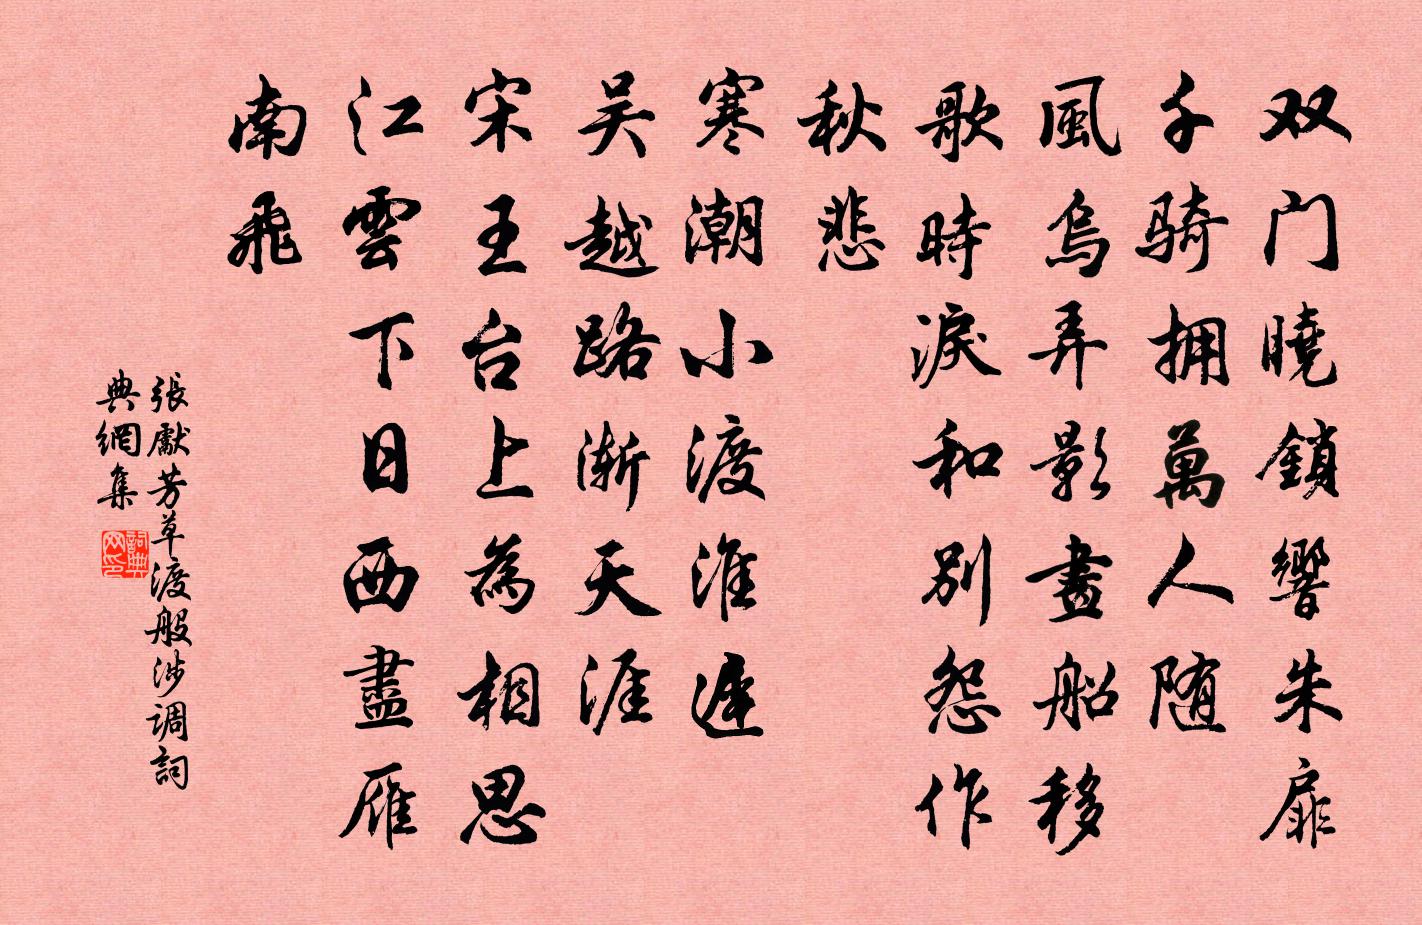 双门曉鎖響朱扉
千骑拥萬人随
風烏弄影畫船移
歌時淚和別怨作
秋悲
寒潮小渡淮遲
吴越路渐天涯
宋王台上為相思
江雲下日西盡雁
南飛
張獻芳草渡般涉调詞
典網集
詞典
网印